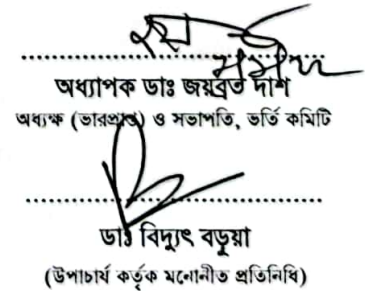 অধ্যাপক ডাঃ জয়ব্রত দাশ
অধ্যক্ষ (ভারপ্রাপ্ত) ও সভাপতি, ভর্তি কমিটি
ডাঃ বিদ্যুৎ বড়ুয়া
(উপাচার্য কর্তৃক মনোনীত প্রতিনিধি)